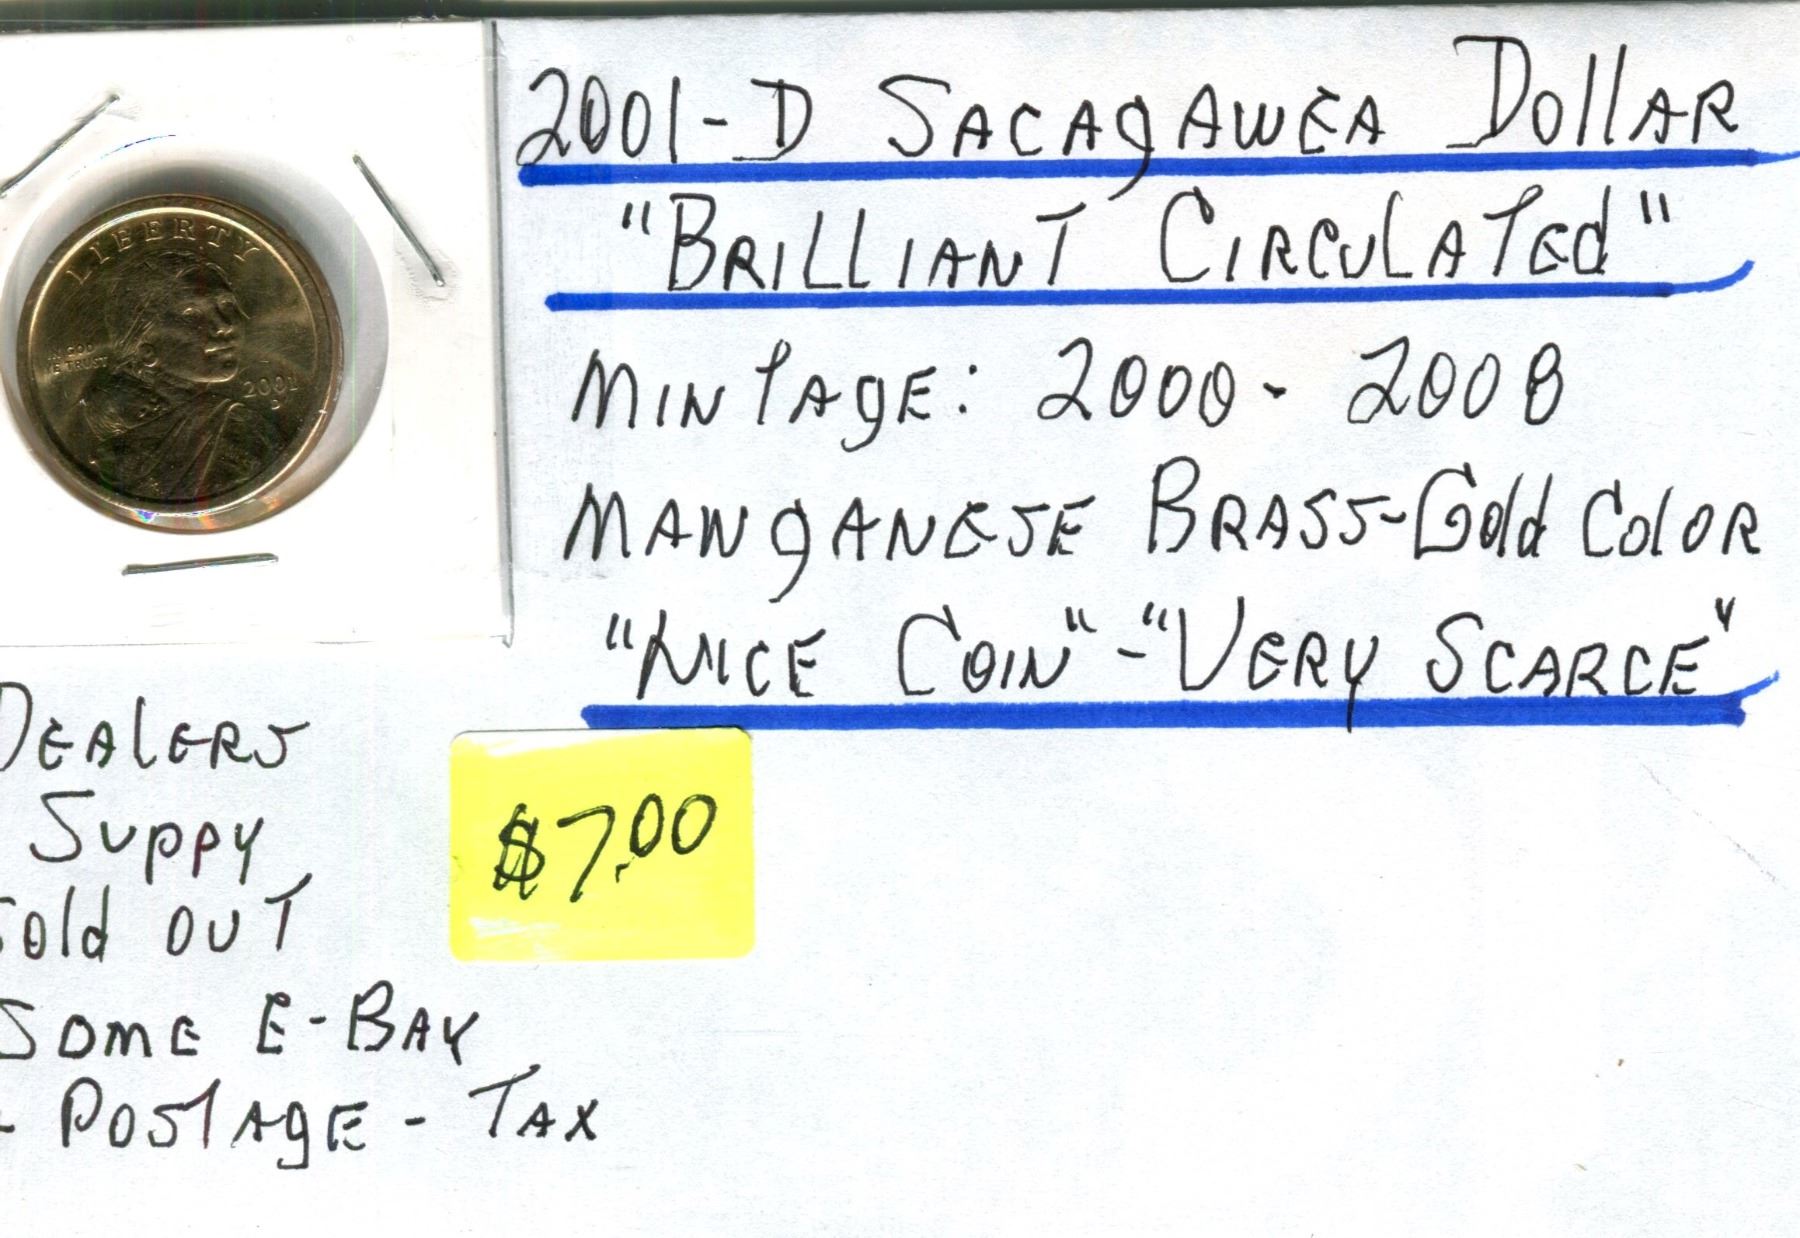 LIBERTY
IN GOD
WE TRUST
2001
D
2001-D SACAgAWEA Dollar
"BRILLIANT CIRCULATEd"
MINTAgE: 2000-2008
MANgANESE BRASS-Gold COlOR
"NICE COIN"-"VERY SCARCE"
DEAlERS
SUPPY
Sold OUT
SOME E-BAY
- POSTAgE - TAX
$7.00